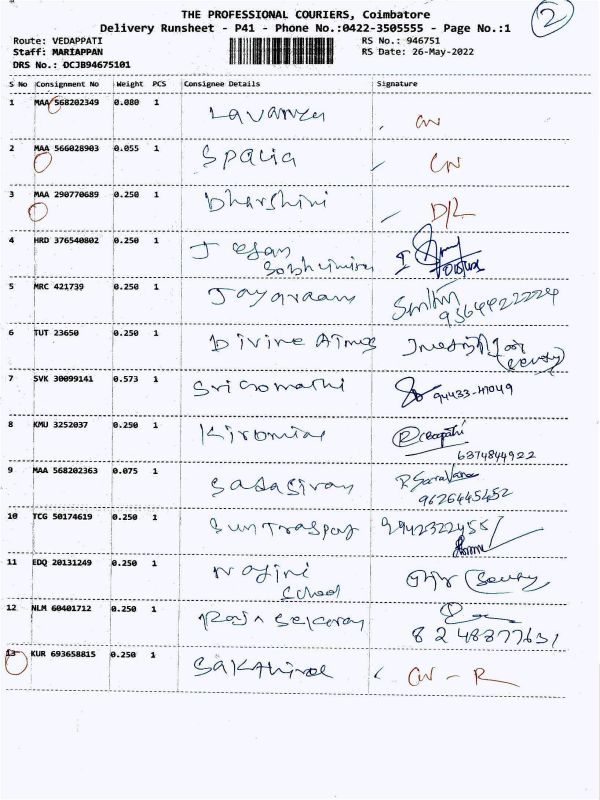 THE PROFESSIONAL COURIERS, Coimbatore
Delivery Runsheet - P41 - Phone No.:0422-3505555 - Page No.:1
2
Route: VEDAPPATI
RS No.: 946751
Staff: MARIAPPAN
RS Date: 26-May-2022
DRS No.: DCJB94675101
S No Consignment No Weight PCS Consignee Details Signature
1 MAA 568202349 0.080 1 Lavanya CN
2 MAA 566028903 0.055 1 Spacia CN
3 MAA 290770689 0.250 1 Dharshini D/L
4 HRD 376540802 0.250 1 Jegan
5 MRC 421739 0.250 1 Jayaraam
6 TUT 23650 0.250 1 Divine Atmos
7 SVK 30099141 0.573 1 Sri Gomathi
8 KMU 3252037 0.250 1
6374844922
9 MAA 568202363 0.075 1 Sadasivam R Saravana
9626445452
10 TCG 50174619 0.250 1
11 EDQ 20131249 0.250 1
School
12 NLM 60401712 0.250 1 Raja Sekaran
8248877631
13 KUR 693658815 0.250 1 Sakthivel CN - R